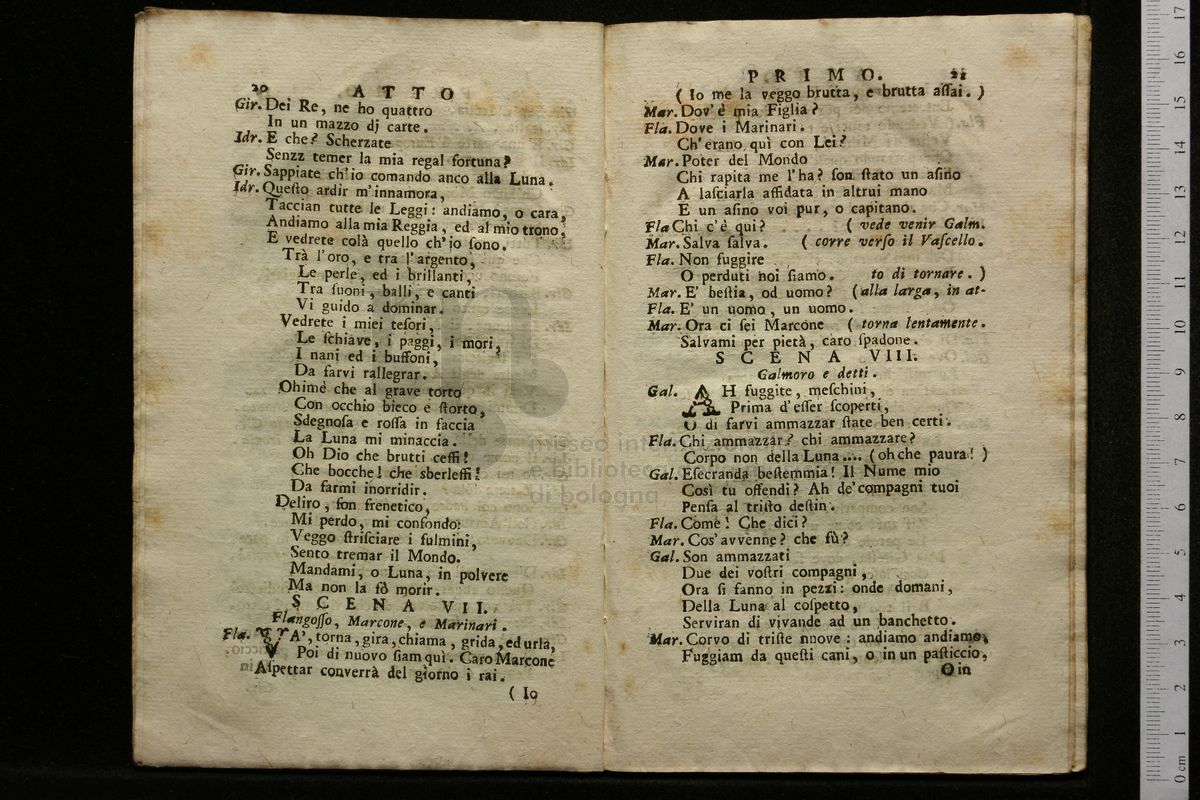 20 ATTO
Gir. Dei Re, ne ho quattro
In un mazzo di carte.
Idr. E che? Scherzate
Senzz temer la mia regal fortuna?
Gir. Sappiate ch'io comando anco alla Luna.
Idr. Queſto ardir m'innamora,
Taccian tutte le Leggi: andiamo, o cara,
Andiamo alla mia Reggia, ed al mio trono,
E vedrete colà quello ch'io ſono.
Trà l'oro, e tra l'argento,
Le perle, ed i brillanti,
Tra ſuoni, balli, e canti
Vi guido a dominar.
Vedrete i miei teſori,
Le ſchiave, i paggi, i mori,
I nani ed i buffoni,
Da farvi rallegrar.
Ohimè che al grave torto
Con occhio bieco e ſtorto,
Sdegnoſa e roſſa in faccia
La Luna mi minaccia.
Oh Dio che brutti ceffi!
Che bocche! che sberleffi!
Da farmi inorridir.
Deliro, ſon frenetico,
Mi perdo, mi confondo:
Veggo ſtriſciare i fulmini,
Sento tremar il Mondo.
Mandami, o Luna, in polvere
Ma non la fò morir.
SCENA VII.
Flangoſſo, Marcone, e Marinari.
Fla. VA', torna, gira, chiama, grida, ed urla,
Poi di nuovo ſiam quì. Caro Marcone
Aſpettar converrà del giorno i rai.
( Io
PRIMO. 21
( Io me la veggo brutta, e brutta aſſai. )
Mar. Dov'è mia Figlia?
Fla. Dove i Marinari.
Ch'erano quì con Lei?
Mar. Poter del Mondo
Chi rapita me l'ha? ſon ſtato un aſino
A laſciarla affidata in altrui mano
E un aſino voi pur, o capitano.
Fla Chi c'è qui? ( vede venir Galm.
Mar. Salva ſalva. ( corre verſo il Vaſcello.
Fla. Non fuggire
O perduti noi ſiamo. to di tornare. )
Mar. E' beſtia, od uomo? (alla larga, in at-
Fla. E' un uomo, un uomo.
Mar. Ora ci ſei Marcone ( torna lentamente.
Salvami per pietà, caro ſpadone.
SCENA VIII.
Galmoro e detti.
Gal. AH fuggite, meſchini,
Prima d'eſſer ſcoperti,
O di farvi ammazzar ſtate ben certi.
Fla. Chi ammazzar? chi ammazzare?
Corpo non della Luna.... ( oh che paura! )
Gal. Eſecranda beſtemmia! Il Nume mio
Così tu offendi? Ah de' compagni tuoi
Penſa al triſto deſtin.
Fla. Come! Che dici?
Mar. Cos'avvenne? che fù?
Gal. Son ammazzati
Due dei voſtri compagni,
Ora ſi fanno in pezzi: onde domani,
Della Luna al coſpetto,
Serviran di vivande ad un banchetto.
Mar. Corvo di triſte nnove: andiamo andiamo,
Fuggiam da queſti cani, o in un paſticcio,
O in
museo
e bibliotec
di bologna
0 cm 1 2 3 4 5 6 7 8 9 10 11 12 13 14 15 16 17